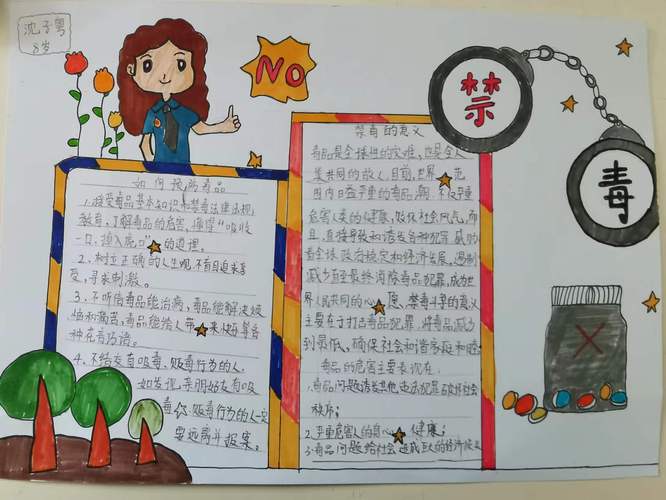 沈子粤
8岁
NO
禁
毒
如何预防毒品
1.接受毒品基本知识和禁毒法律法规
教育,了解毒品的危害,懂得“吸收
一口,掉入虎口”的道理。
2.树立正确的人生观,不盲目追求享
受,寻求刺激。
3.不听信毒品能治病,毒品能解决烦
恼和痛苦,毒品能给人带来快等各
种花言巧语。
4.不结友有吸毒、贩毒行为的人.
如发现,亲朋好友有吸
毒、贩毒行为的人一定
要远离并报案。
禁毒的意义
毒品是全球性的灾难,也是全人
类共同的敌人,目前,世界范
围内日益严重的毒品潮,不仅严重
危害人类的健康,败坏社会风气,而
且,直接导致和诱发各种犯罪,威胁
着全球政府稳定和经济发展。遏制
减少直至最终消除毒品犯罪,成为世
界人民共同的心愿、禁毒斗争的意义
主要在于打击毒品犯罪,将毒品减少
到最低、确保社会和谐
毒品的危害主要表现在:
1.毒品问题诱发其他违法犯罪破坏社会
秩序;
2.严重危害人的身心健康;
3.毒品问题给社会造成巨大的经济损失